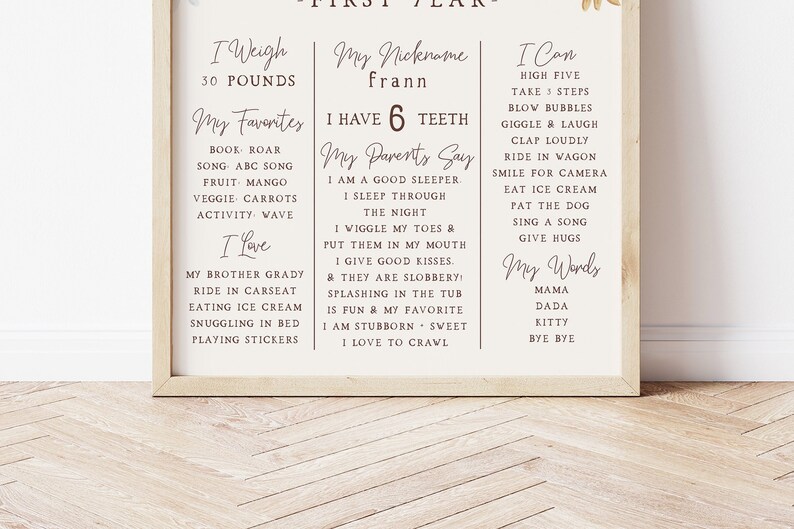 -FIRST YEAR-
I Weigh
30 POUNDS
My Favorites
BOOK: ROAR
SONG: ABC SONG
FRUIT: MANGO
VEGGIE: CARROTS
ACTIVITY: WAVE
I Love
MY BROTHER GRADY
RIDE IN CARSEAT
EATING ICE CREAM
SNUGGLING IN BED
PLAYING STICKERS
My Nickname
frann
I HAVE 6 TEETH
My Parents Say
I AM A GOOD SLEEPER.
I SLEEP THROUGH
THE NIGHT
I WIGGLE MY TOES &
PUT THEM IN MY MOUTH
I GIVE GOOD KISSES,
& THEY ARE SLOBBERY!
SPLASHING IN THE TUB
IS FUN & MY FAVORITE
I AM STUBBORN + SWEET
I LOVE TO CRAWL
I Can
HIGH FIVE
TAKE 3 STEPS
BLOW BUBBLES
GIGGLE & LAUGH
CLAP LOUDLY
RIDE IN WAGON
SMILE FOR CAMERA
EAT ICE CREAM
PAT THE DOG
SING A SONG
GIVE HUGS
My Words
MAMA
DADA
KITTY
BYE BYE